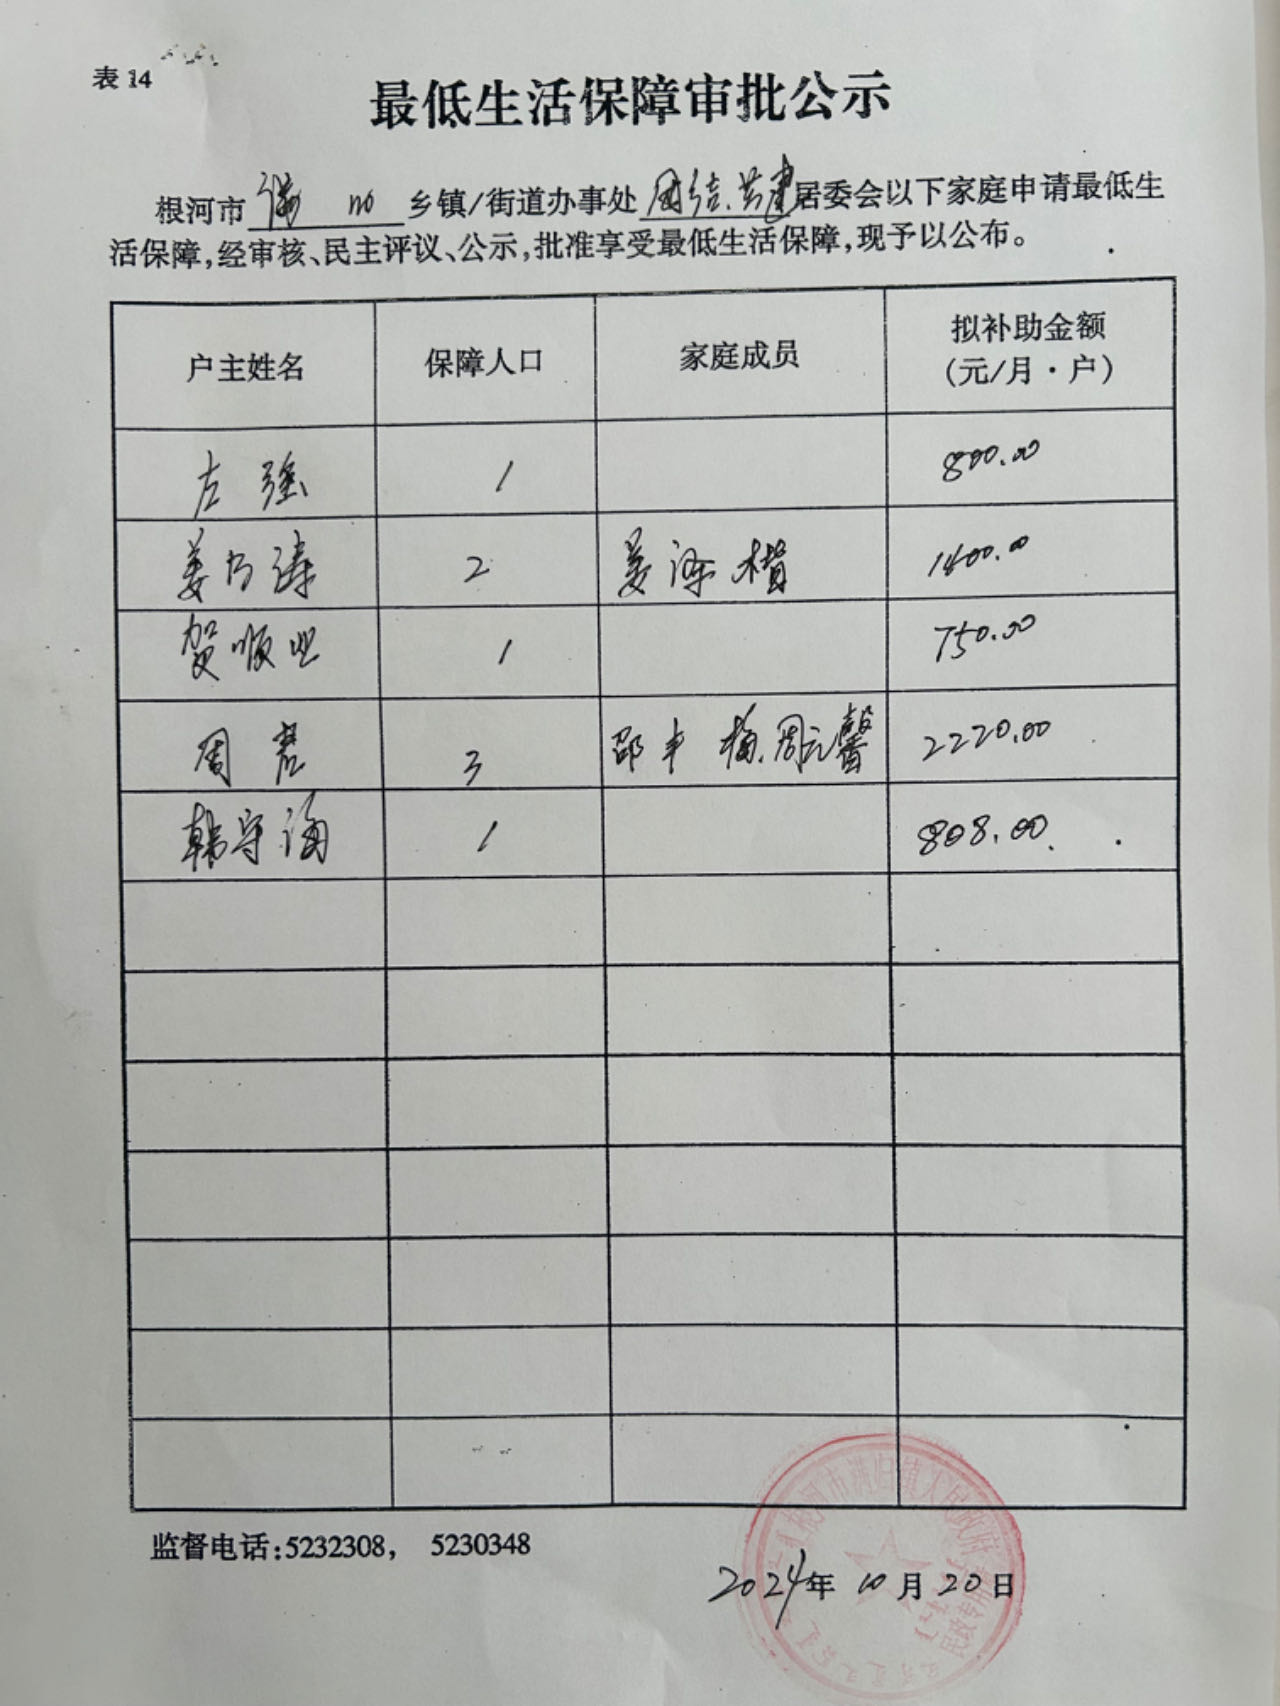 表 14
最低生活保障审批公示
根河市 满归 乡镇/街道办事处 团结、共建 居委会以下家庭申请最低生
活保障,经审核、民主评议、公示,批准享受最低生活保障,现予以公布。
户主姓名 保障人口 家庭成员 拟补助金额
(元/月·户)
左强 1 800.00
姜 涛 2 姜 楷 1400.00
贺顺 1 750.00
周君 3 邵丰梅、周元馨 2220.00
韩守海 1 808.00
监督电话:5232308, 5230348
2024年 10月20日
根河市满归镇人民政府
民政专用章